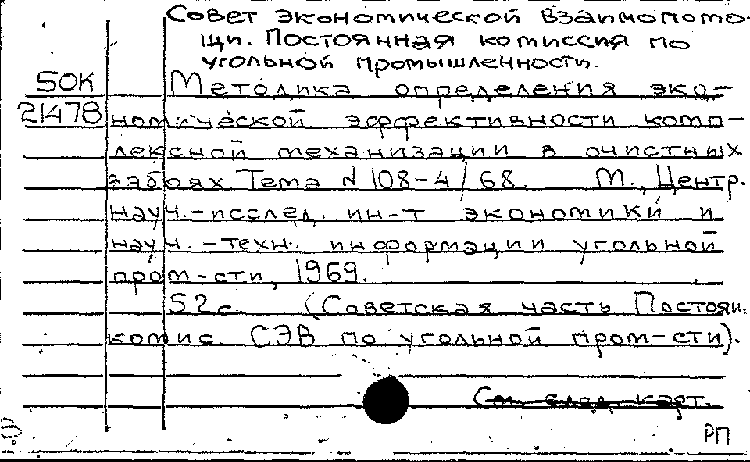 Совет экономической взаимопомо-
щи. Постоянная комиссия по
угольной промышленности.
50К Методика определения эко-
21478 номической эффективности комп-
лексной механизации в очистных
забоях Тема № 108-4/68. М., Центр.
науч.-исслед. ин-т экономики и
науч.-техн. информации угольной
пром-сти, 1969.
52с. (Советская часть Постоян.
комис. СЭВ по угольной пром-сти).
См. след. карт.
РП